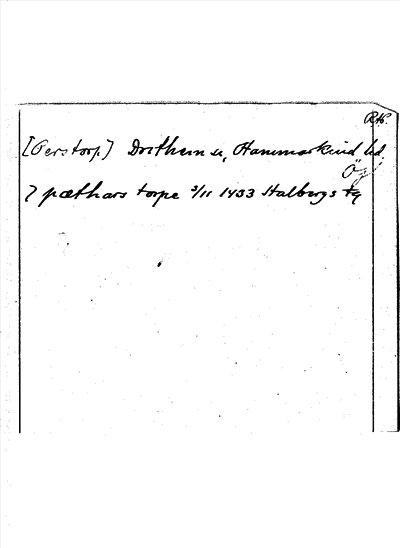 [Perstorp] Drothem sn, Hammarkind hd.
Ög
J pæthars torpe 3/11 1433 Stalbergs